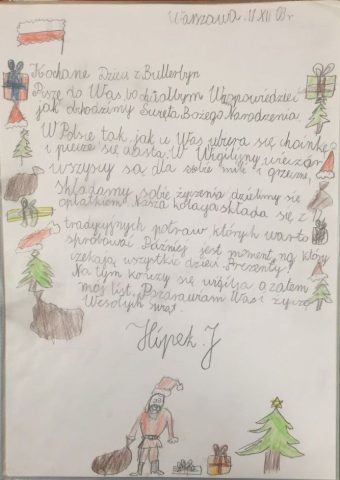 Warszawa 17 XII 08 r.
Kochane Dzieci z Bullerbyn
Piszę do Was, bo chciałbym Wam opowiedzieć
jak obchodzimy Święta Bożego Narodzenia.
W Polsce tak jak u Was ubiera się choinkę
i piecze się ciasta. W Wigilijny wieczór
wszyscy są dla siebie mili i grzeczni,
składamy sobie życzenia dzielimy się
opłatkiem. Nasza kolacja składa się z
tradycyjnych potraw których warto
spróbować. Później jest moment, na który
czekają wszystkie dzieci. Prezenty!
Na tym kończy się wigilia a zatem
mój list. Pozdrawiam Was i życzę
Wesołych świąt.
Hipek. J